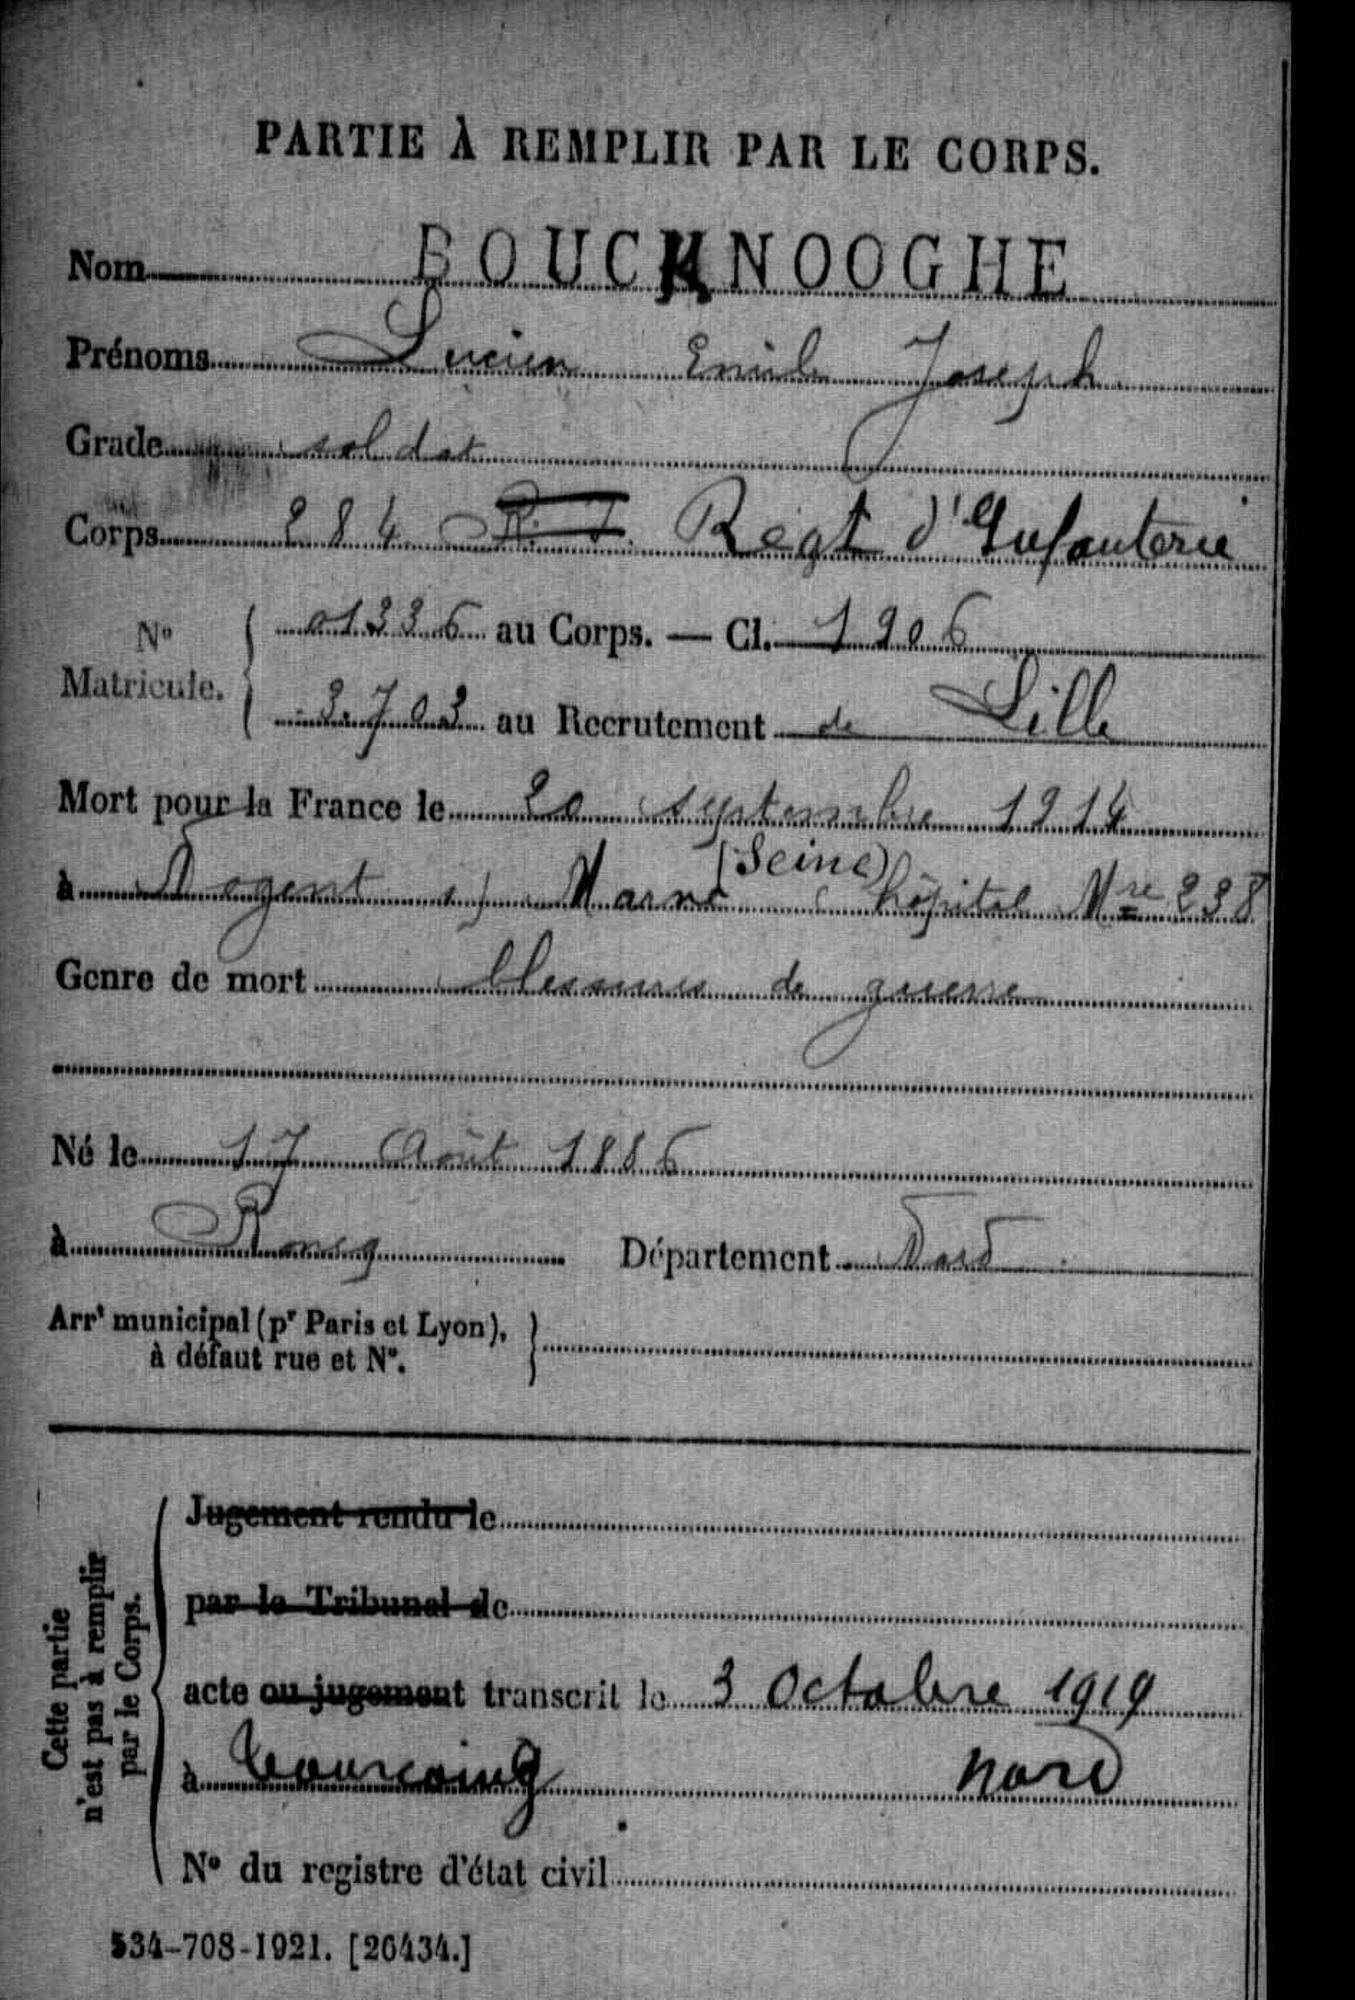 PARTIE À REMPLIR PAR LE CORPS.
Nom BOUCKNOOGHE
Prénoms Lucien Emile Joseph
Grade soldat
Corps 284 R. I. Régt d'Infanterie
N° Matricule. 01336 au Corps. — Cl. 1906
3703 au Recrutement de Lille
Mort pour la France le 20 septembre 1914
à Nogent s/ Marne (Seine) hôpital Mre 238
Genre de mort blessures de guerre
Né le 17 Août 1886
à Roncq Département Nord
Arrt municipal (pr Paris et Lyon),
à défaut rue et N°.
Cette partie
n'est pas à remplir
par le Corps.
Jugement rendu le
par le Tribunal de
acte ou jugement transcrit le 3 Octobre 1919
à Tourcoing Nord
N° du registre d'état civil
534-708-1921. [26434.]